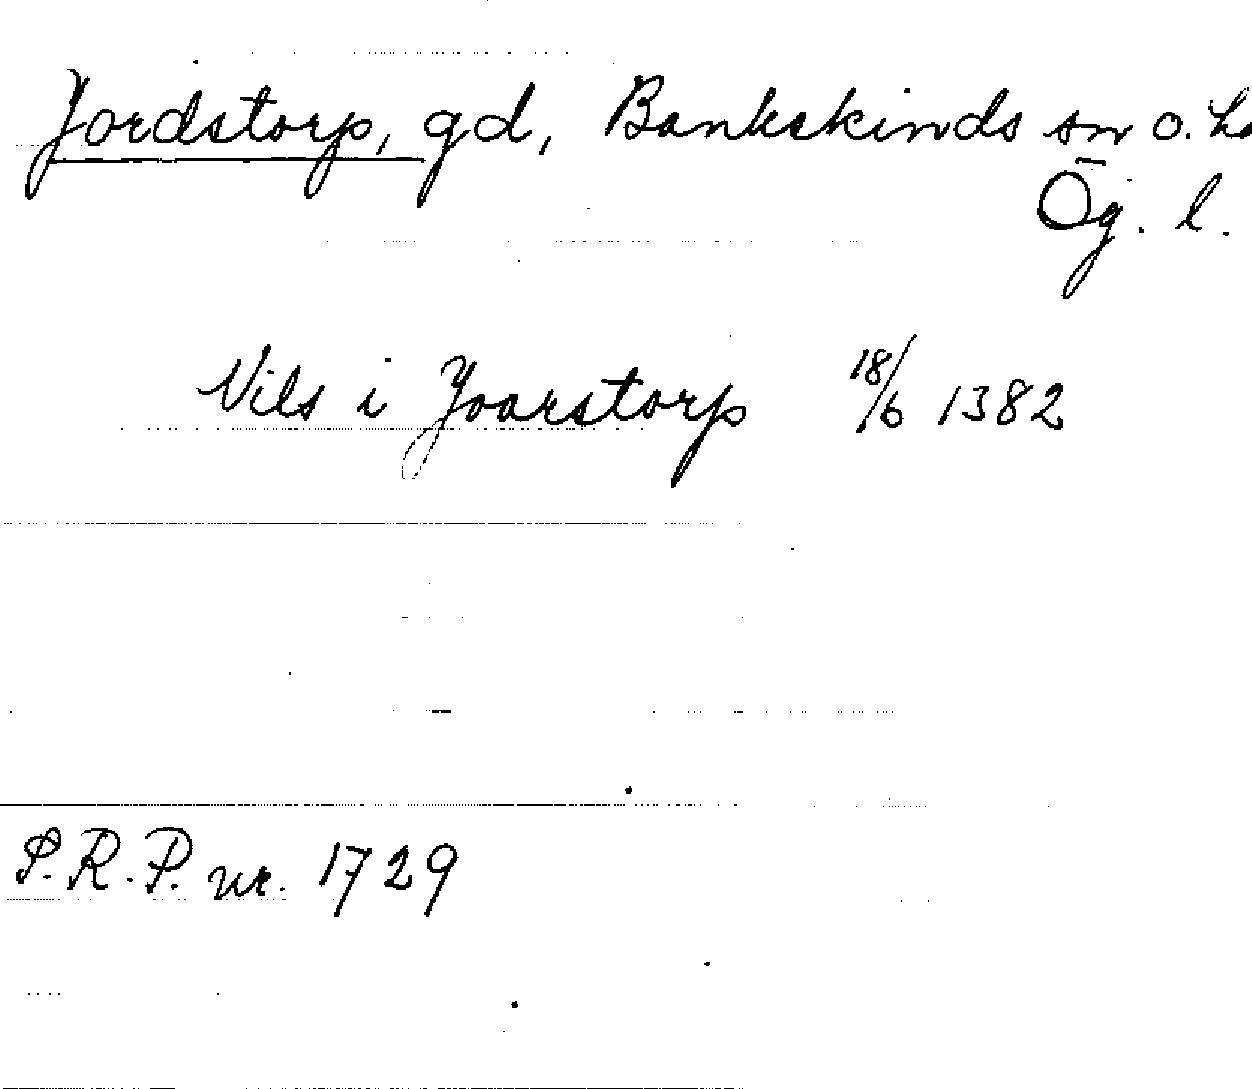 Jordstorp, gd, Bankekinds sn o. hd
Ög. l.
Nils i Joarstorp 18/6 1382
S.R.P. nr. 1729